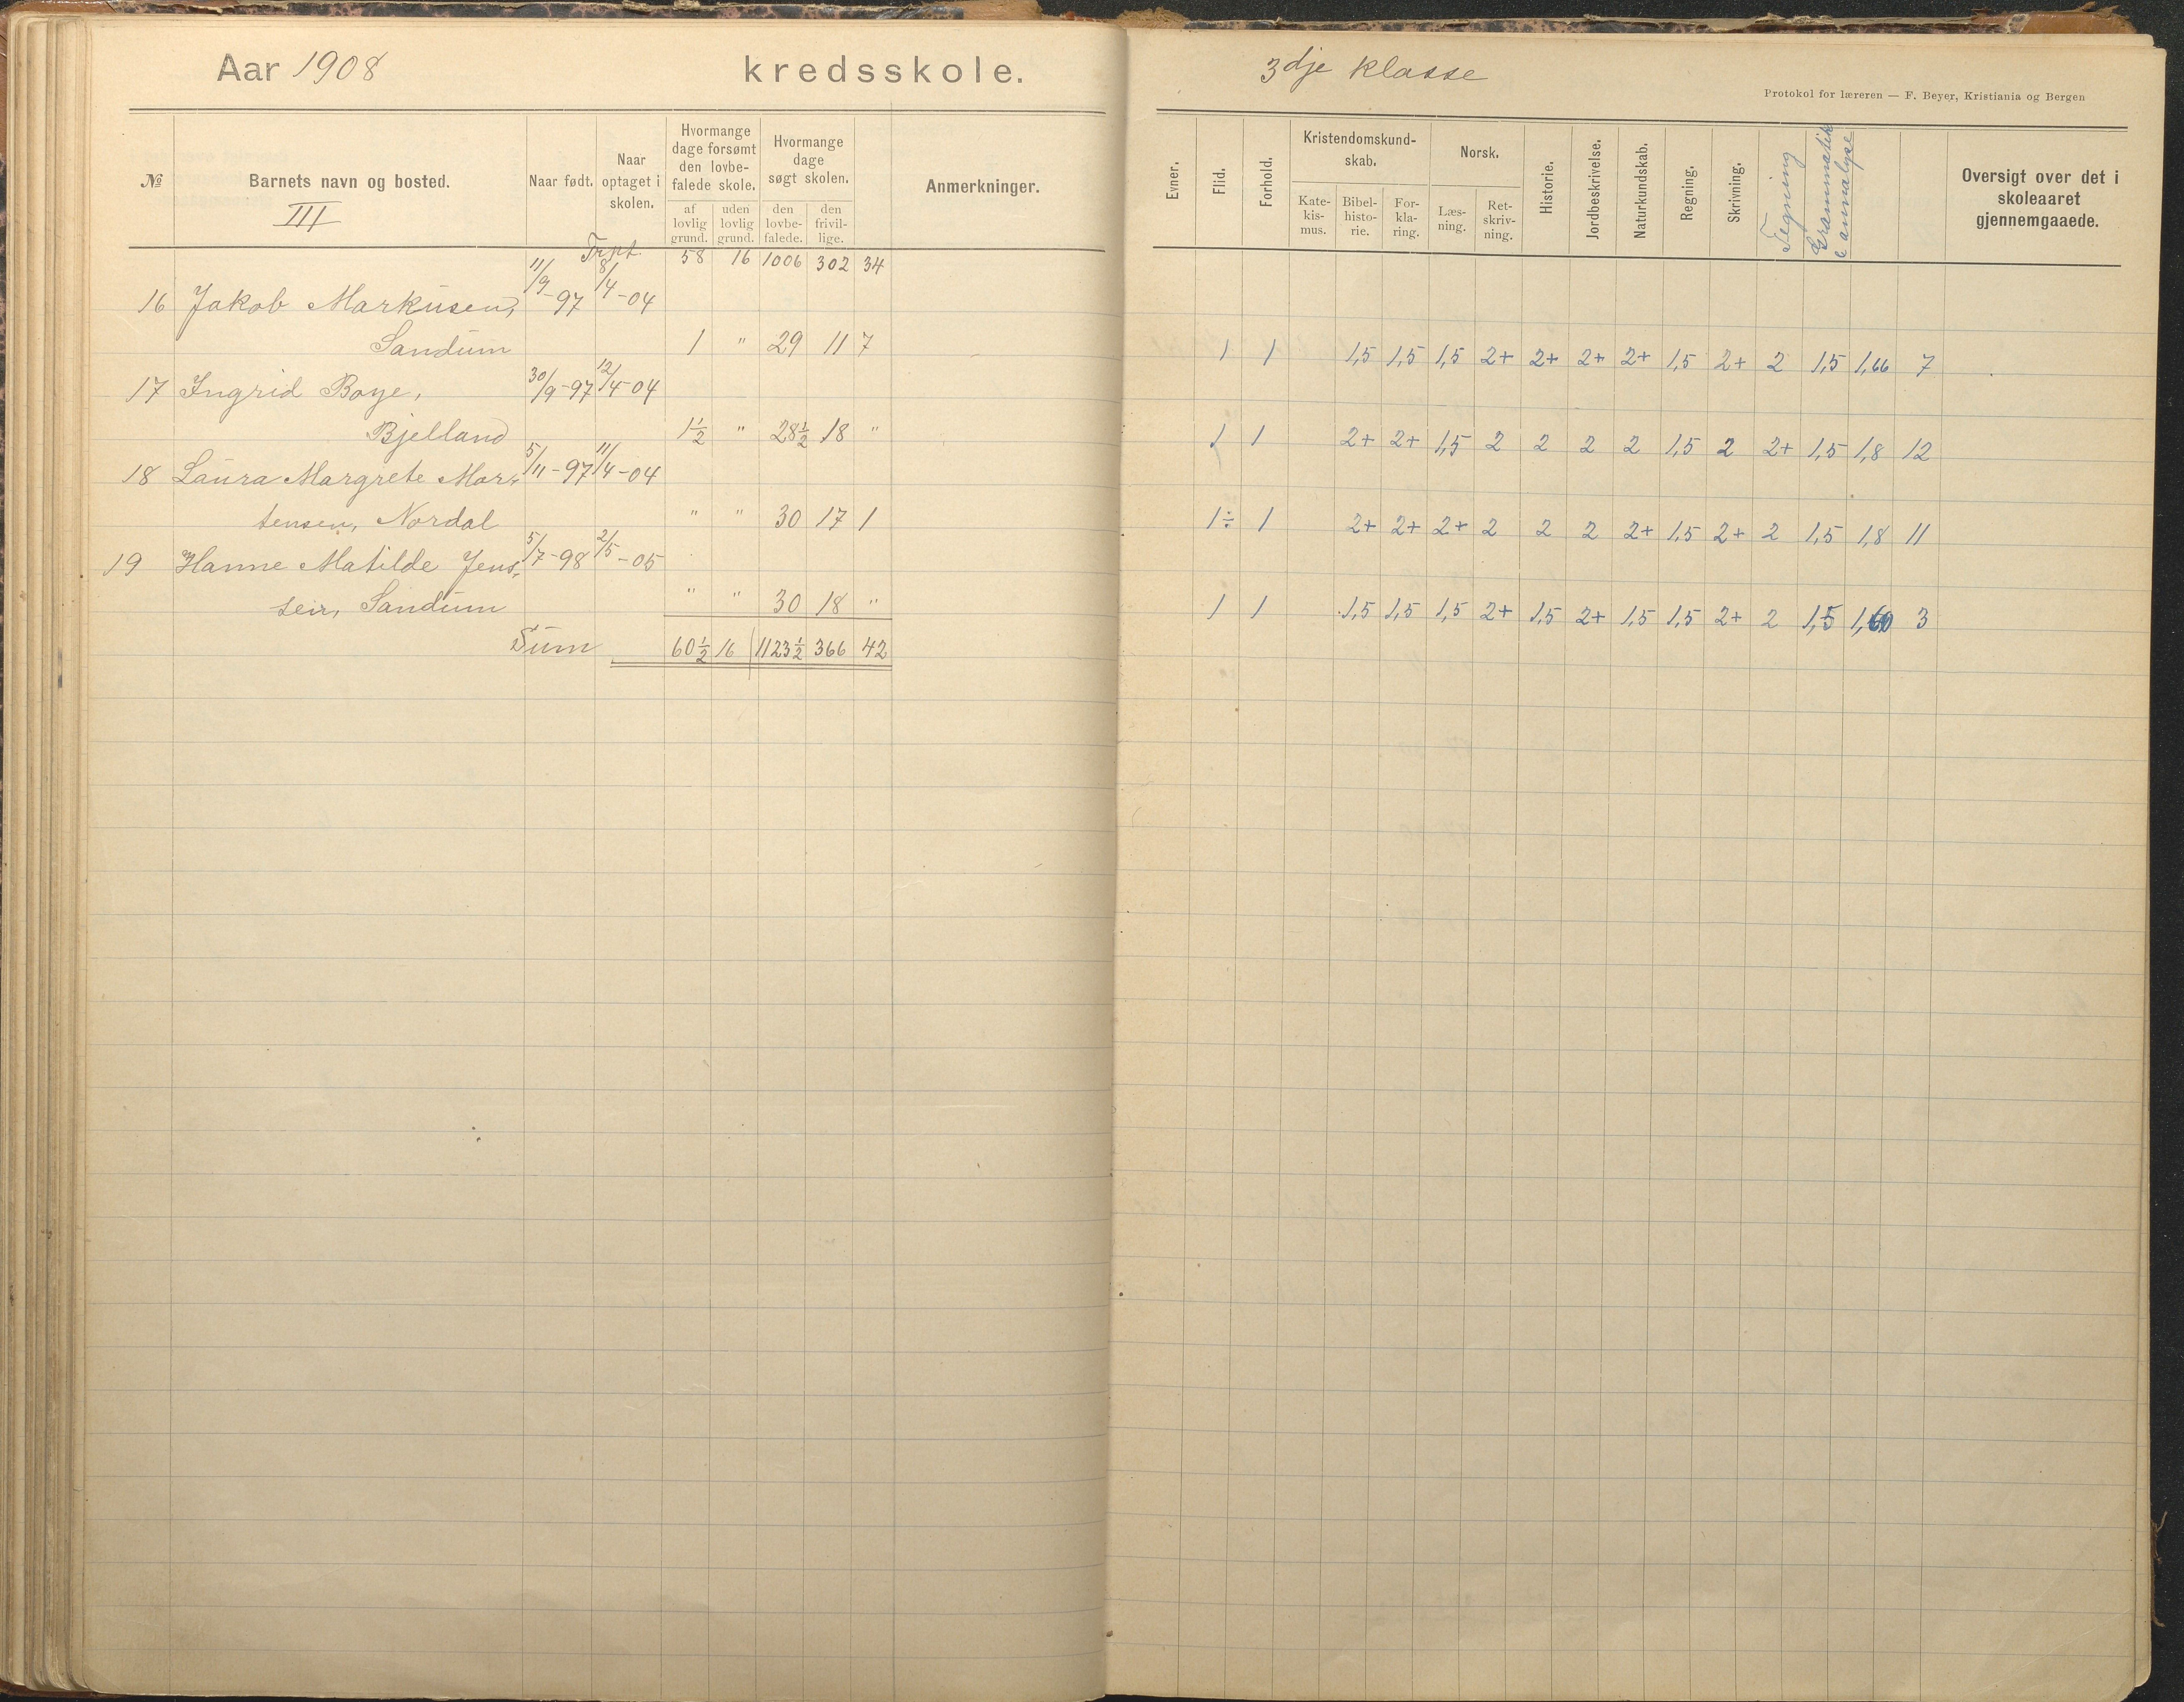 Aar 1908 kredsskole.
№ Barnets navn og bosted. Naar født. Naar optaget i skolen. Hvormange dage forsømt den lovbe- falede skole. Hvormange dage søgt skolen. Anmerkninger.
af lovlig grund. uden lovlig grund. den lovbe- falede. den frivil- lige.
III
Trpt. 58 16 1006 302 34
16 Jakob Markusen, 11/9-97 8/4-04
Sandum 1 " 29 11 7
17 Ingrid Boye, 30/9-97 12/4-04
Bjelland 1½ " 28½ 18 "
18 Laura Margrete Mor- 5/11-97 11/4-04
tensen, Nordal " " 30 17 1
19 Hanne Matilde Jens- 5/7-98 2/5-05
sen, Sandum " " 30 18 "
Sum 60½ 16 1123½ 366 42
3dje klasse
Protokol for læreren — F. Beyer, Kristiania og Bergen
Evner. Flid. Forhold. Kristendomskund- skab. Norsk. Historie. Jordbeskrivelse. Naturkundskab. Regning. Skrivning. Tegning Grammatik & annalyse Oversigt over det i skoleaaret gjennemgaaede.
Kate- kis- mus. Bibel- histo- rie. For- kla- ring. Læs- ning. Ret- skriv- ning.
1 1 1,5 1,5 1,5 2+ 2+ 2+ 2+ 1,5 2+ 2 1,5 1,66 7
1 1 2+ 2+ 1,5 2 2 2 2 1,5 2 2+ 1,5 1,8 12
1÷ 1 2+ 2+ 2+ 2 2 2 2+ 1,5 2+ 2 1,5 1,8 11
1 1 1,5 1,5 1,5 2+ 1,5 2+ 1,5 1,5 2+ 2 1,5 1,60 3